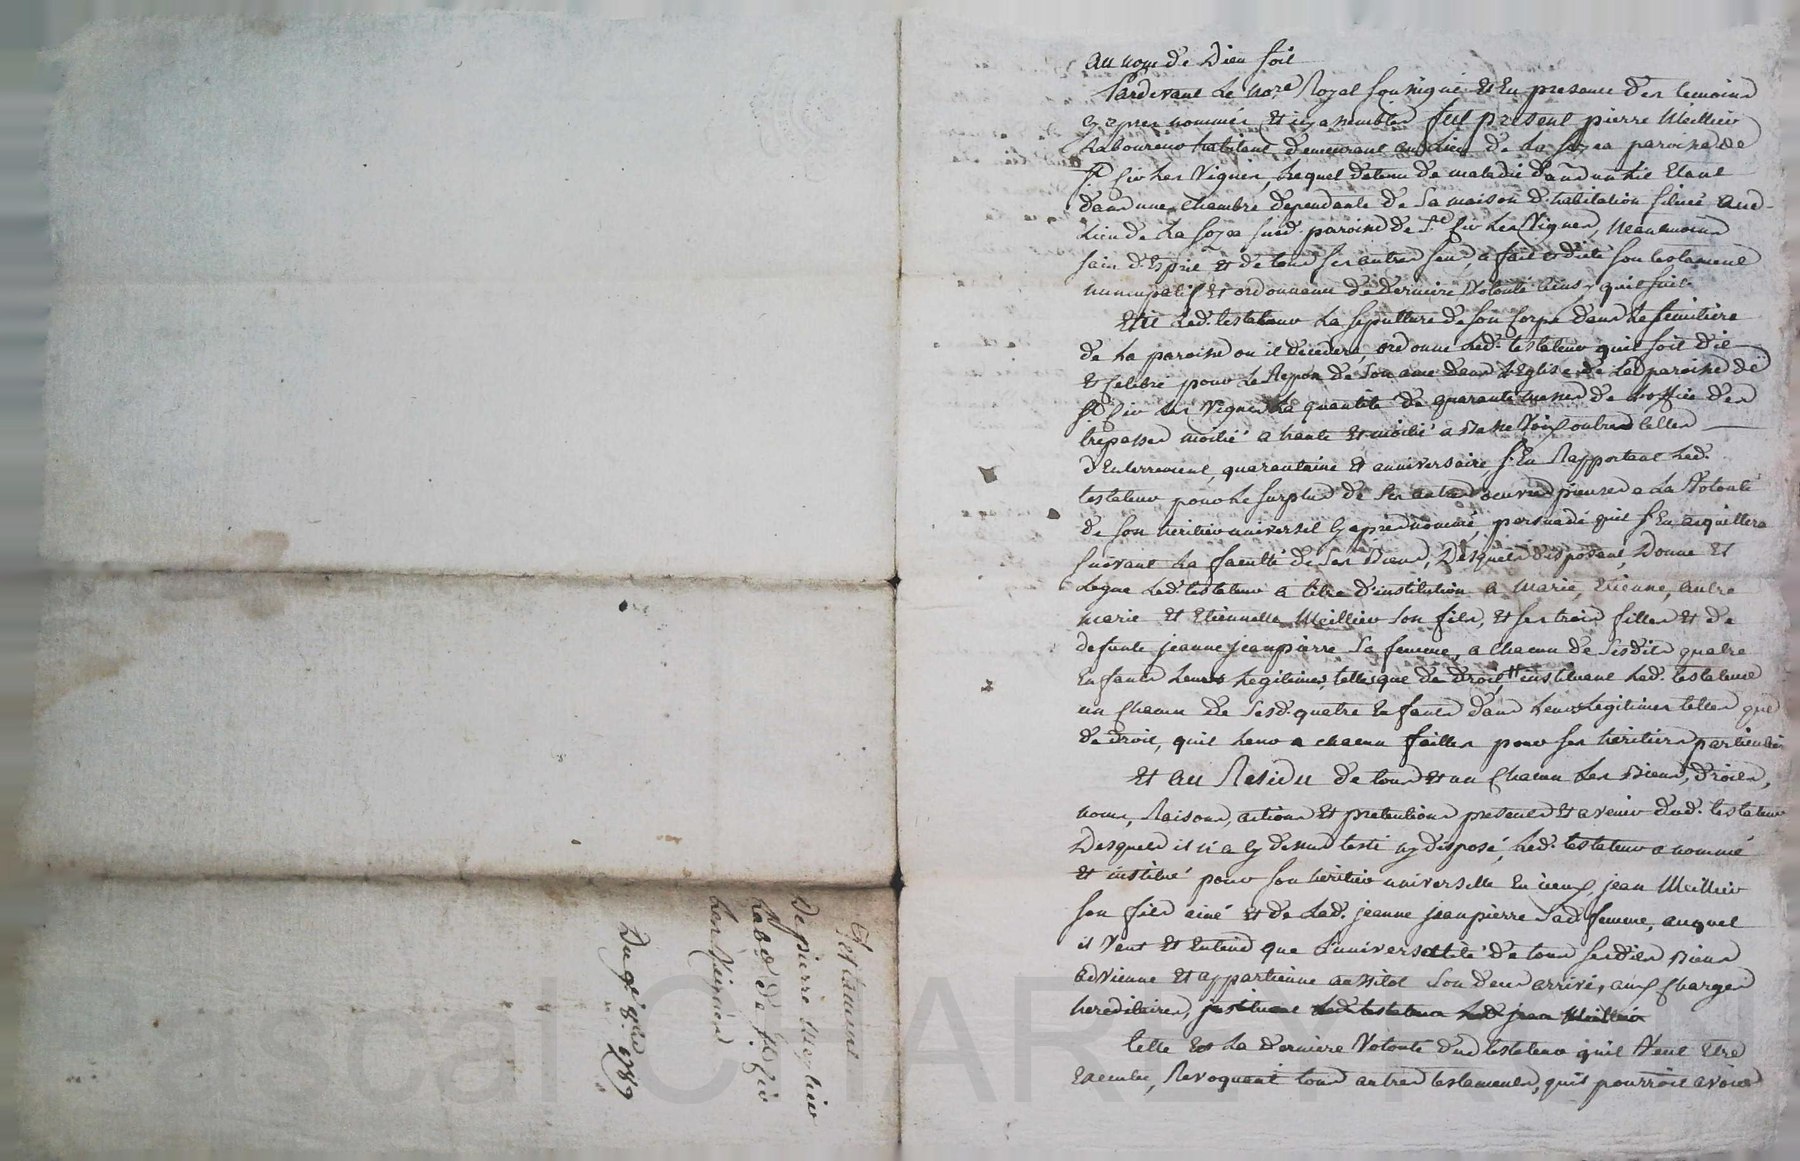 au nom de Dieu soit
Pardevant Le nore Royal soussigné et En presence des temoins
cy apres nommés et cy assemblés fut présent pierre Meillier
Laboureur habitant demeurant au Lieu de La paroisse de
St Cir Les Vignes, Lequel detenu de maladie dans un lit Etant
dans une chambre dependante de sa maison d'habitation située aud.
Lieu de La susd. paroisse de St Cir Les Vignes, neanmoins
sain d'Esprit et de tous ses autres sens, a fait et dicté son testament
nuncupatif et ordonnance de derniere Volonté ainsy quil suit.
Elit Led. testateur La sepulture de son corps dans Le simitière
de La paroisse ou il decedera, ordonne Led. testateur quil soit dit
et celebré pour Le Repos de son ame dans L'Eglise de Lad paroisse de
St Cir Les Vignes La quantité de quarante messes de L'office des
trepassés moitié a haute et moitié a Basse Voix outre celles
d'Enterrement, quarantaine et anniversaire s'En Rapportant Led.
testateur pour Le surplus de ses autres oeuvres pieuses a La Volonté
de son heritier universel cy apres nommé, persuadé quil s'En acquittera
suivant La faculté de ses Biens, Desquels disposant, Donne et
Legue Led. testateur a titre d'institution a Marie, Etienne, autre
marie et Etiennette Meillier son fils, et ses trois filles et de
defunte jeanne jeanpierre sa femme, a chacun de sesdits quatre
Enfants Leurs Legitimes, telles que de droit, instituant Led. testateur
un chacun de sesd. quatre Enfants dans Leurs Legitimes telles que
de droit, quil Leur a chacun faittes pour ses héritiers particuliers
Et au Residu de tous et un chacun Les Biens, droits,
noms, Raisons, actions et pretentions presents et avenir dud. testateur
Desquels il n'a cy dessus testé ny disposé, Led. testateur a nommé
et institué pour son heritier universelle En iceux, jean Meillier
son fils ainé et de Lad. jeanne jeanpierre sad. femme, auquel
il Veut et Entend que L'universalité de tous sesdits Biens
advienne et appartienne aussitot son deces arrivé, aux charges
hereditaires, instituant Led. testateur Led. jean Meillier
telle Est La derniere Volonté dud testateur quil Veut Etre
Executée, Revoquant tous autres testaments, quil pourroit avoir
Testament
De pierre Meillier
Labr de St Cir
Les Vignes
Du 1789
cal CHAREYRON